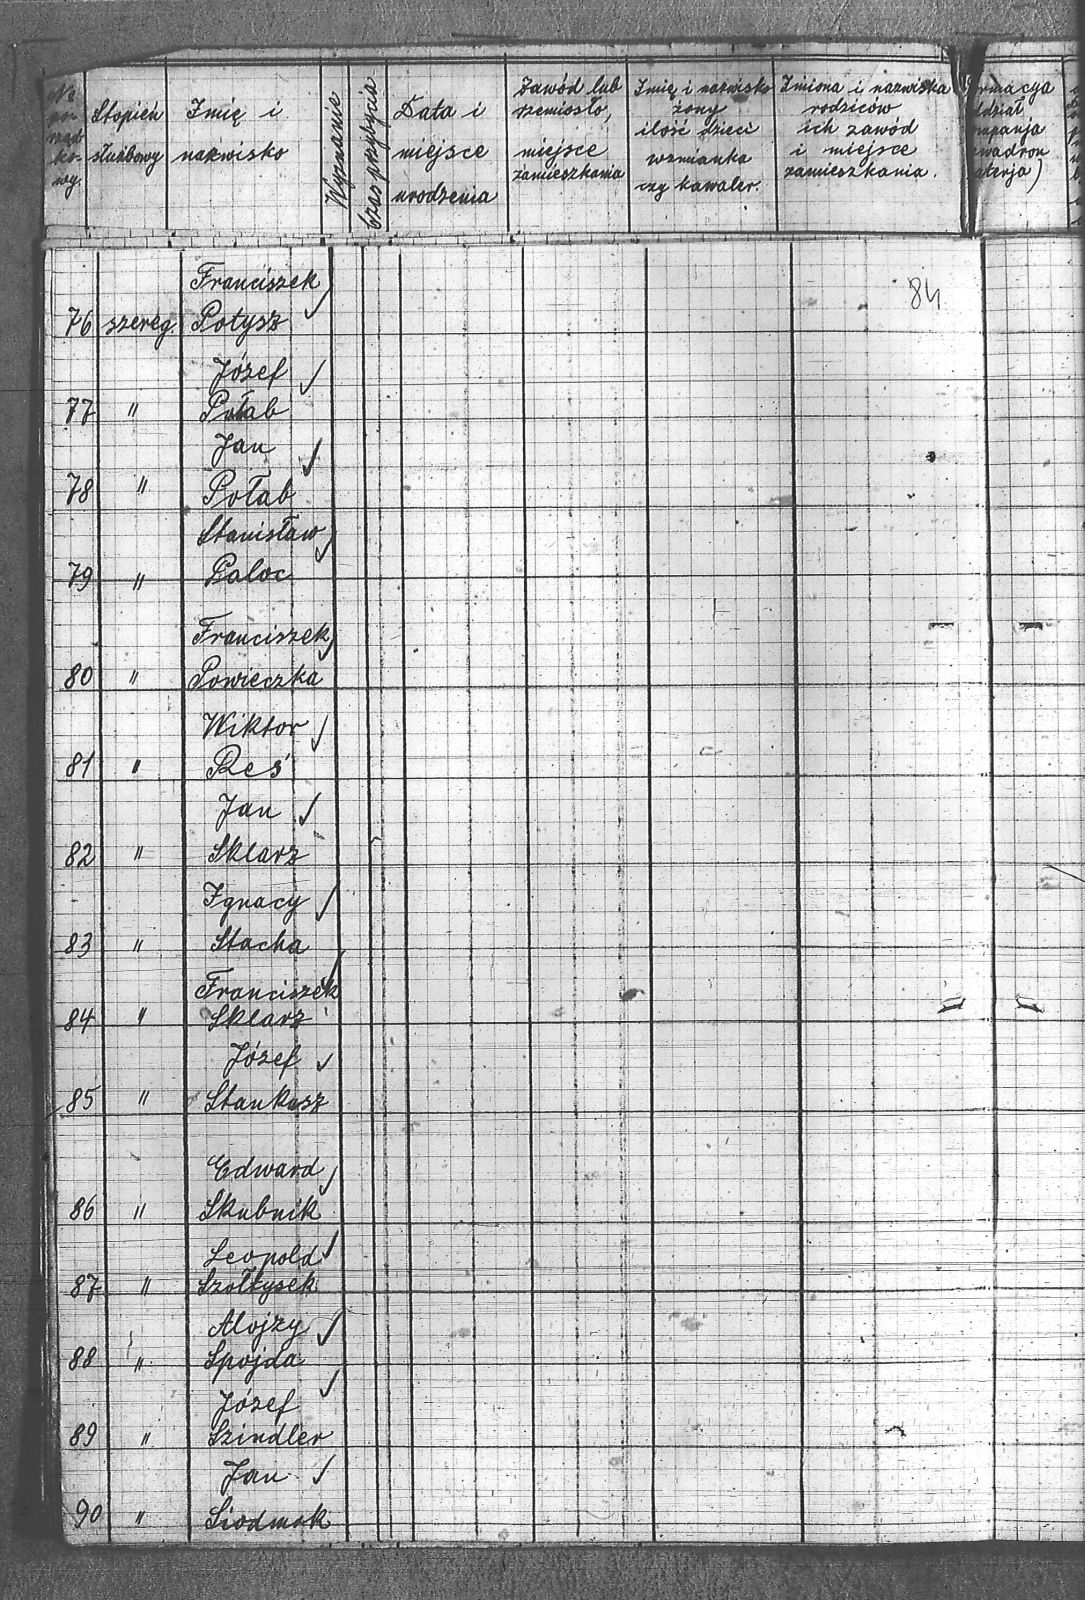 № po- rząd- ko- wy.
Stopień służbowy
Imię i nazwisko
Wyznanie
Czas przybycia
Data i miejsce urodzenia
Zawód lub rzemiosło, miejsce zamieszkania
Imię i nazwisko żony ilość dzieci wzmianka czy kawaler.
Imiona i nazwiska rodziców ich zawód i miejsce zamieszkania.
rmacya ddział mpanja wadron aterja)
84
Franciszek
76 szereg. Potysz
Józef
77 " Połab
Jan
78 " Połab
Stanisław
79 " Paloc
Franciszek
80 " Powieczka
Wiktor
81 " Reś
Jan
82 " Sklarz
Ignacy
83 " Stacha
Franciszek
84 " Sklarz
Józef
85 " Stankusz
Edward
86 " Skubnik
Leopold
87 " Szołtysek
Alojzy
88 " Spojda
Józef
89 " Szindler
Jan
90 " Siodmok